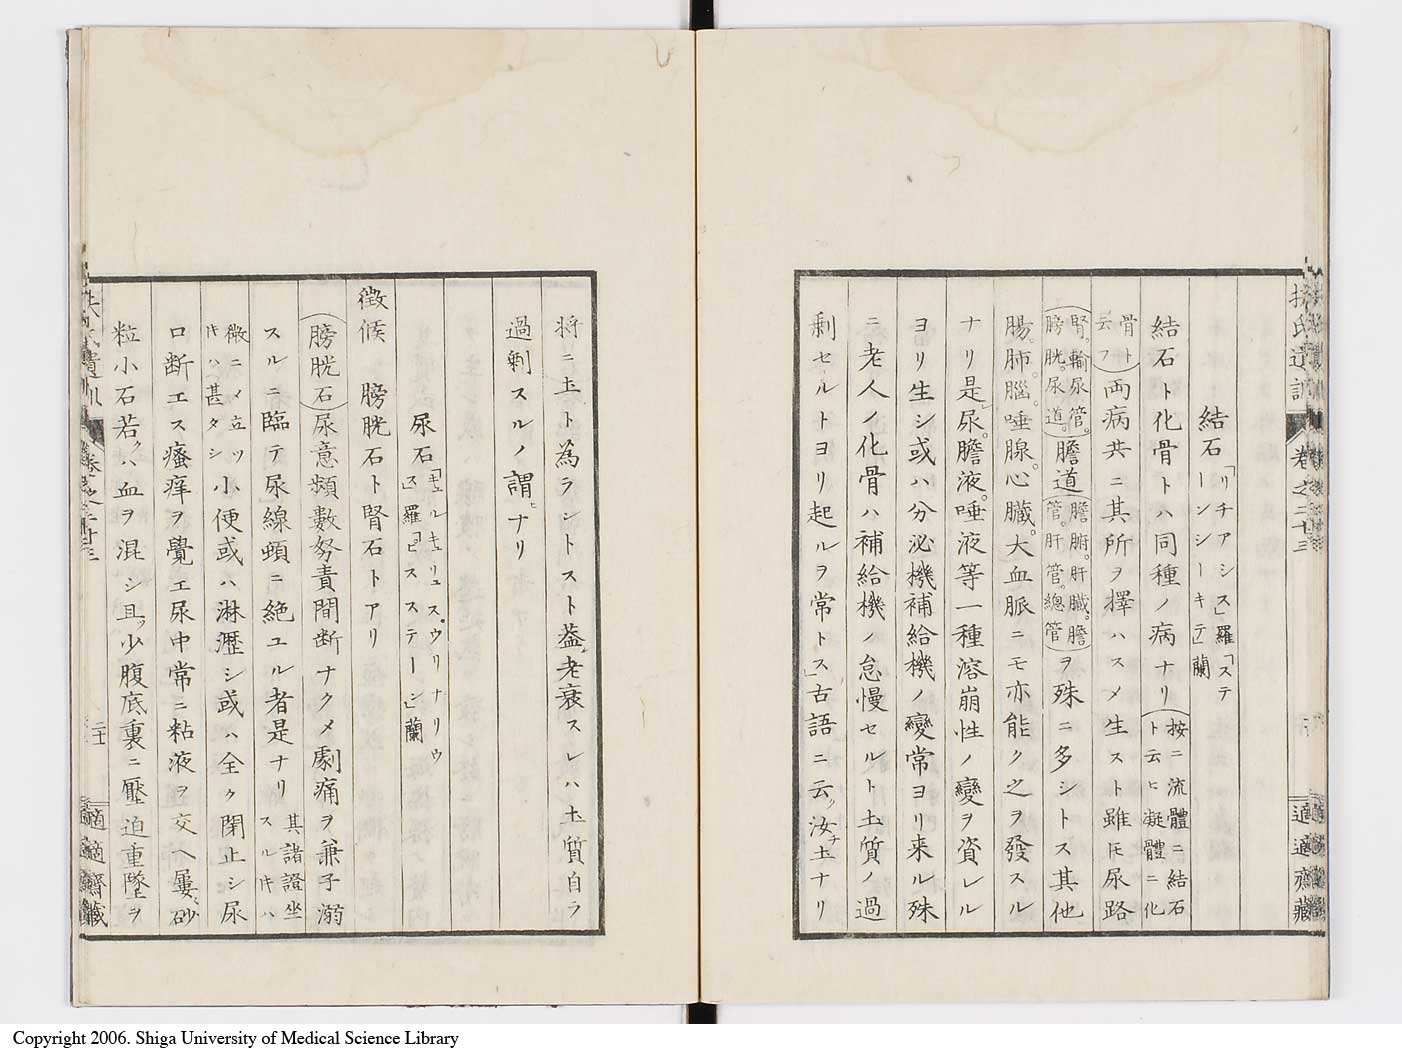 扶氏遺訓 卷之二十三 適適齋藏
結石 「リチアシス」羅「ステーンシーキテ」蘭
結石ト化骨トハ同種ノ病ナリ(按ニ流體ニ結石ト云ヒ凝體ニ化
骨ト云フ)両病共ニ其所ヲ擇ハスメ生スト雖𪜈尿路
(腎。輸尿管。膀胱。尿道。)膽道(膽腑。肝臓。膽管。肝管。總管)ヲ殊ニ多シトス其他
腸。肺。腦。唾腺。心臓。大血脈ニモ亦能ク之ヲ發スル
ナリ是」尿。膽液。唾液等一種溶崩性ノ變ヲ資レル
ヨリ生シ或ハ分泌機補給機ノ變常ヨリ来ル殊
ニ老人ノ化骨ハ補給機ノ怠慢セルト土質ノ過
剰セルトヨリ起ルヲ常トス」古語ニ云ッ汝チ土ナリ
将ニ土ト為ラントスト葢老衰スレハ土質自ラ
過剰スルノ謂ヒナリ
尿石 「キュルキュリュス、ウリナリウス」羅「ピスステーン」蘭
徴候 膀胱石ト腎石トアリ
(膀胱石)尿意頻數努責間断ナクメ劇痛ヲ兼子溺
スルニ臨テ尿線頓ニ絶ユル者是ナリ 其諸證坐スル𪜈ハ
微ニメ立ツ𪜈ハ甚タシ 小便或ハ淋瀝シ或ハ全ク閉止シ尿
口断エス瘙痒ヲ覺エ尿中常ニ粘液ヲ交ヘ屢〻砂
粒小石若クハ血ヲ混シ且ッ少腹底裏ニ壓迫重墜ヲ
扶氏遺訓 卷之二十三 二十一 適適齋藏
Copyright 2006. Shiga University of Medical Science Library